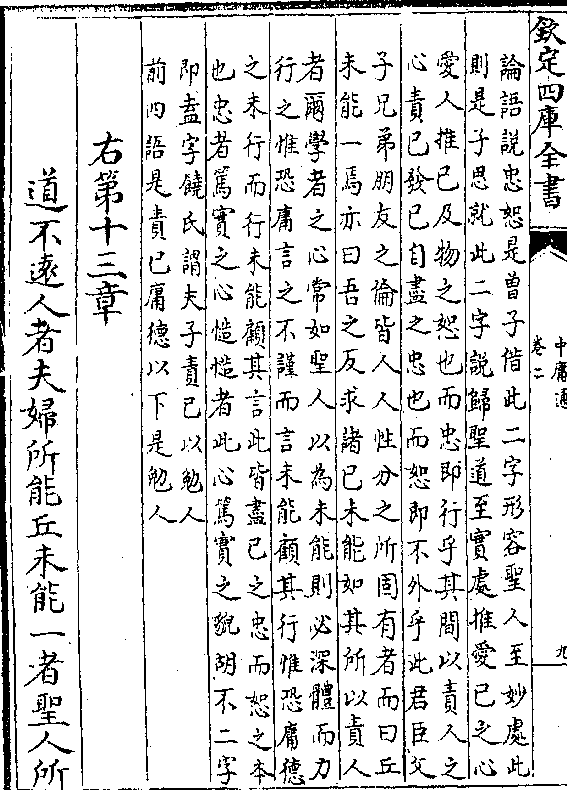 欽定四庫全書
中庸通
卷二
九
論語說忠恕是曾子借此二字形容聖人至妙處此
則是子思就此二字說歸聖道至實處推愛己之心
愛人推己及物之恕也而忠即行乎其間以責人之
心責己發己自盡之忠也而恕即不外乎此君臣父
子兄弟朋友之倫皆人人性分之所固有者而曰丘
未能一焉亦曰吾之反求諸己未能如其所以責人
者爾學者之心常如聖人以為未能則必深體而力
行之惟恐庸言之不謹而言未能顧其行惟恐庸德
之未行而行未能顧其言此皆盡己之忠而恕之本
也忠者篤實之心慥慥者此心篤實之貌胡不二字
即盍字饒氏謂夫子責己以勉人
前四語是責己庸德以下是勉人
右第十三章
道不遠人者夫婦所能丘未能一者聖人所